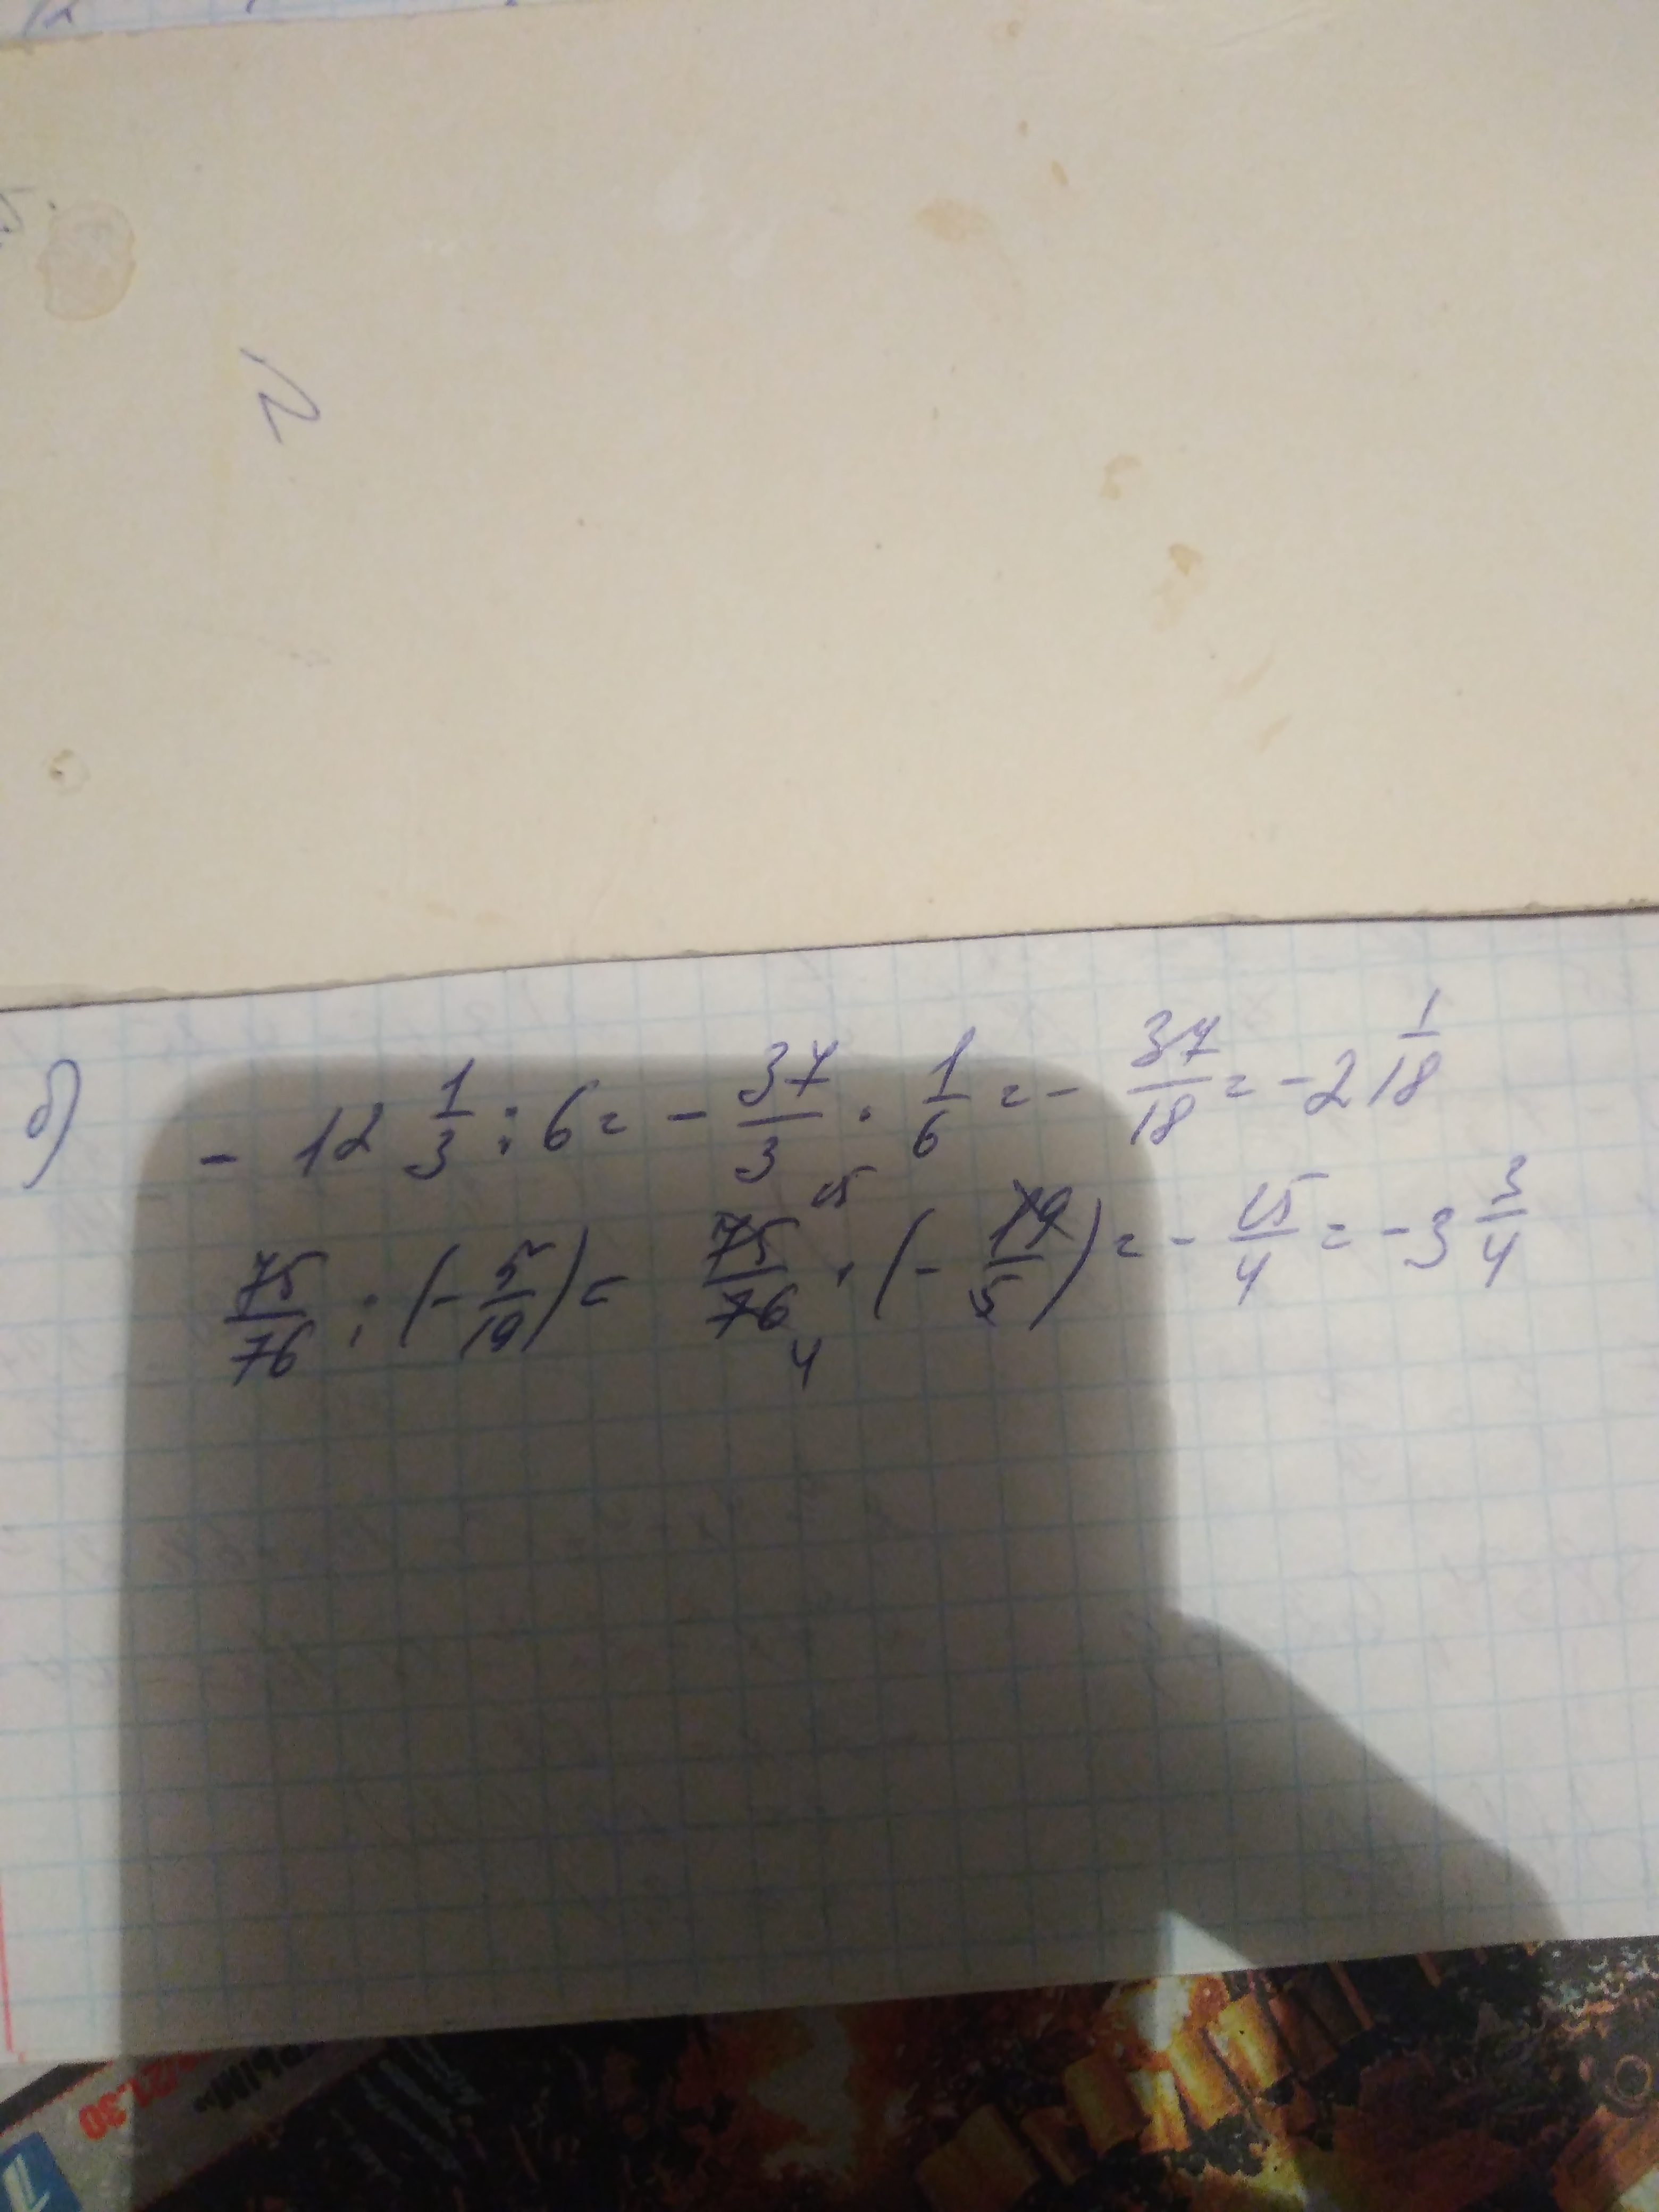 2
б) - 12 1/3 : 6 = - 37/3 · 1/6 = - 37/18 = - 2 1/18
75/76 : (- 5/19) = 75/76 15 4 · (- 19/5) = - 15/4 = - 3 3/4
21.30